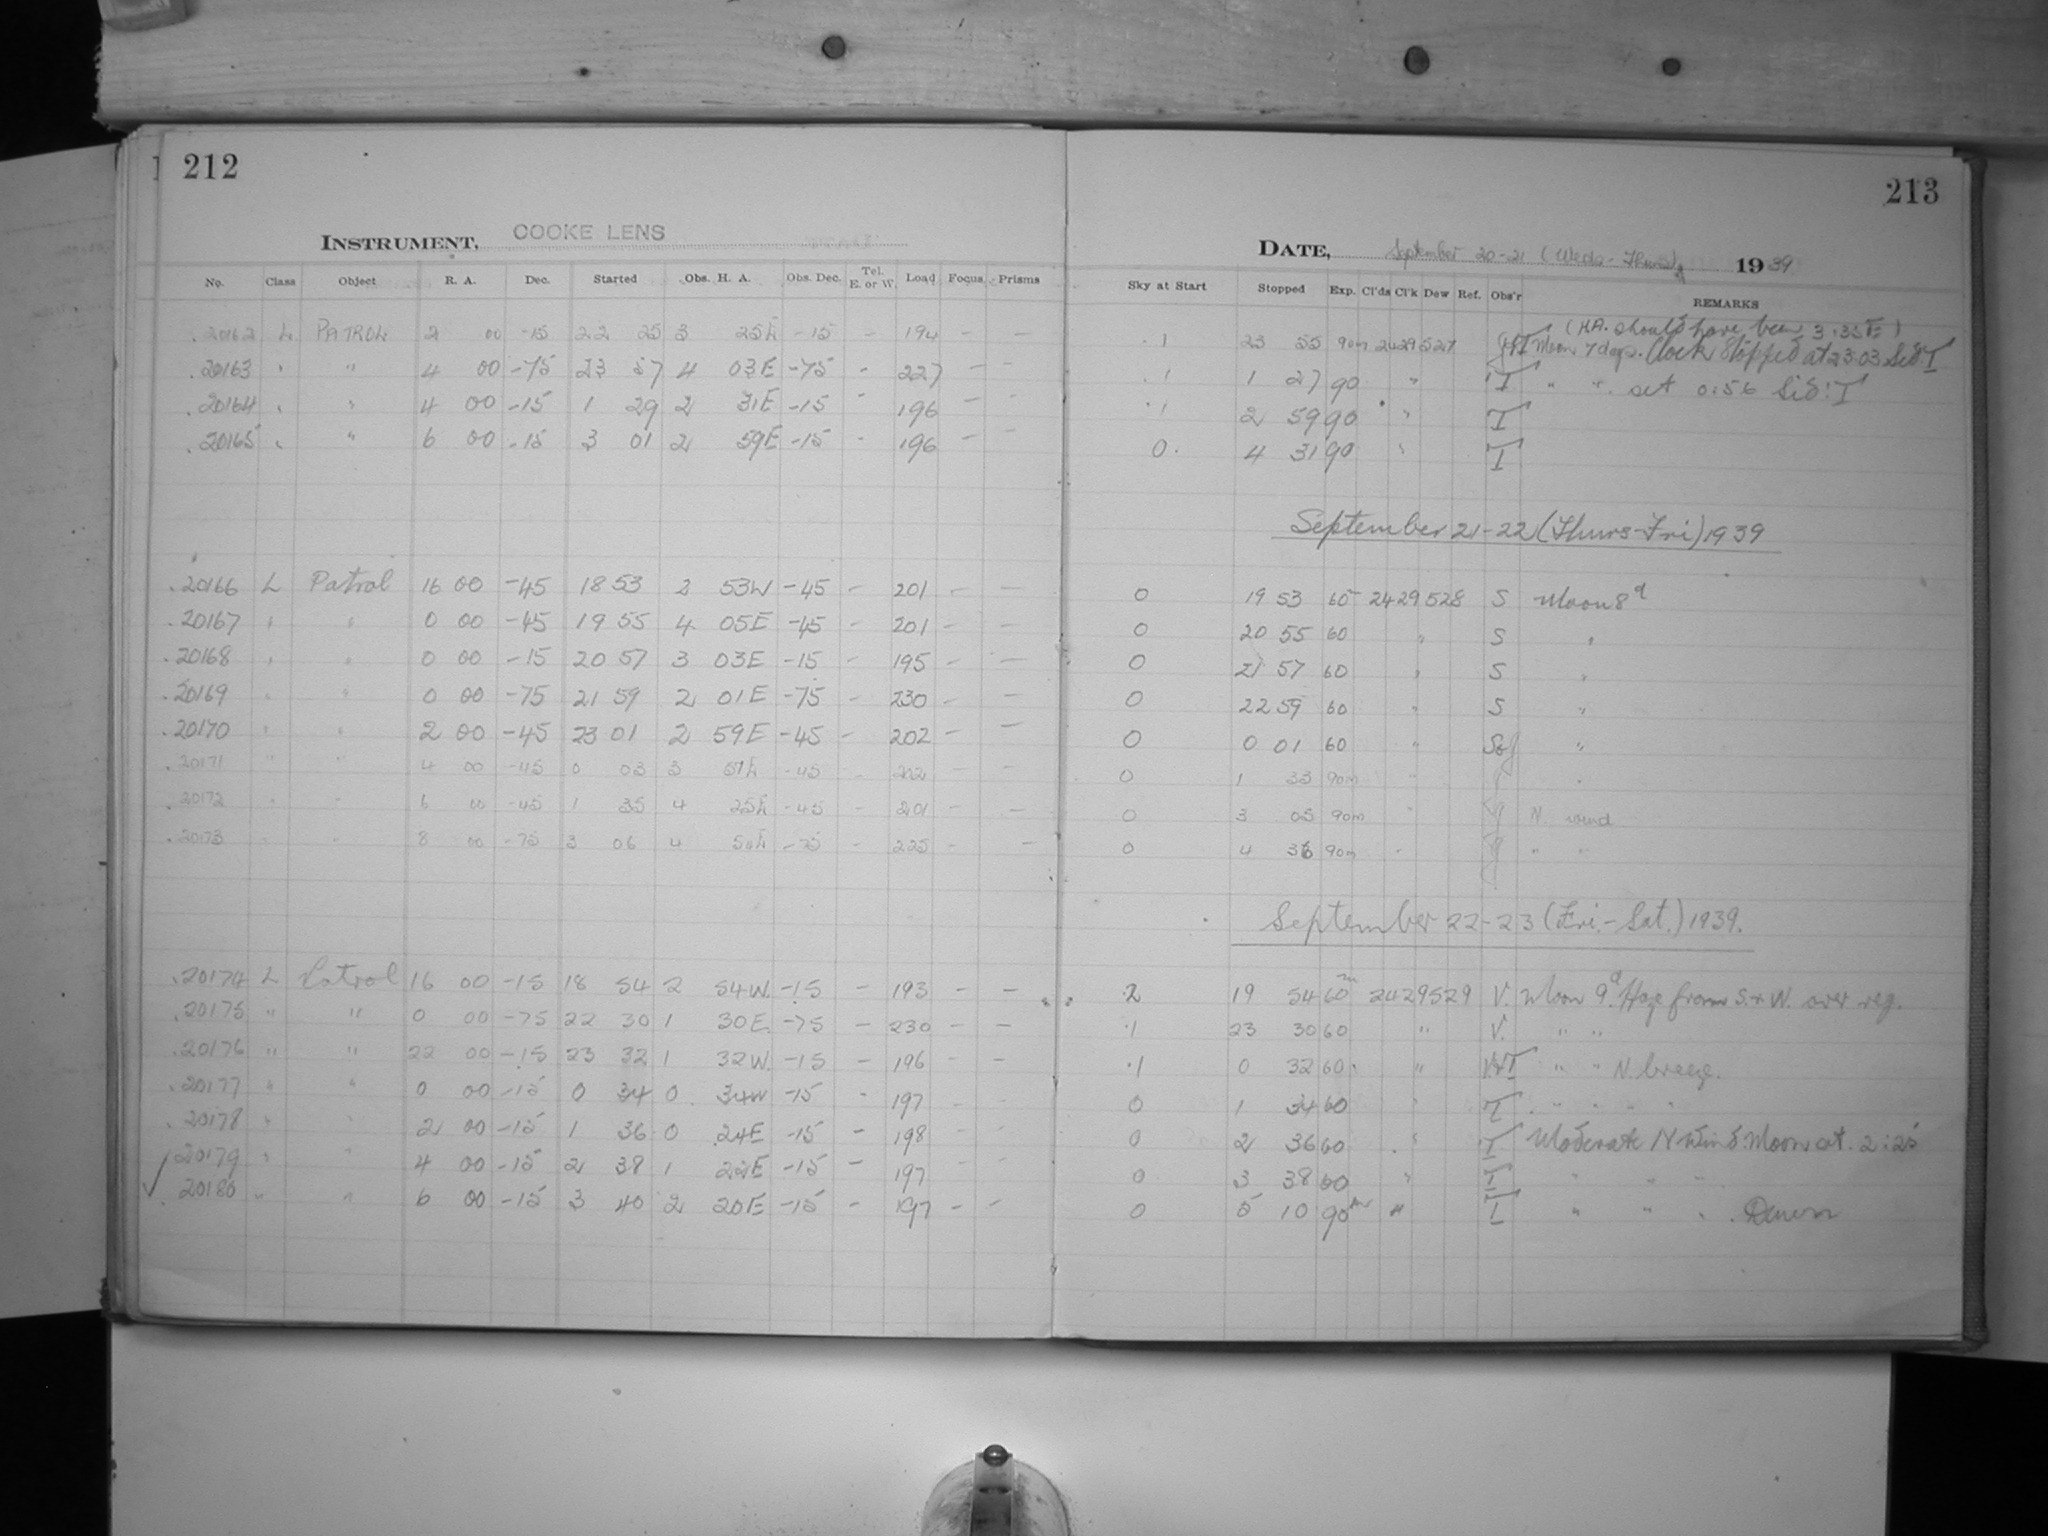 212
213
INSTRUMENT, COOKE LENS
DATE, September 20-21 (Weds-Thurs) 1939
No. Class Object R. A. Dec. Started Obs. H. A. Obs. Dec. Tel. E. or W. Load Focus Prisms Sky at Start Stopped Exp. Cl'ds Cl'k Dew Ref. Obs'r REMARKS
(H.A. should have been 3.33E)
.20162 L PATROL 2 00 -15 22 25 3 25E -15 - 194 - - .1 23 55 90m 2429527 Moon 7 days. Clock stopped at 23:03 Sid: T
.20163 " " 4 00 -75 23 57 4 03E -75 - 227 - - .1 1 27 90 " T " " set 0:56 Sid: T
.20164 " " 4 00 -15 1 29 2 31E -15 - 196 - - .1 2 59 90 " T
.20165 " " 6 00 -15 3 01 2 59E -15 - 196 - - 0. 4 31 90 " T
September 21-22 (Thurs-Fri) 1939
.20166 L Patrol 16 00 -45 18 53 2 53W -45 - 201 - - 0 19 53 60 2429528 S Moon 8d
.20167 " " 0 00 -45 19 55 4 05E -45 - 201 - - 0 20 55 60 " S "
.20168 " " 0 00 -15 20 57 3 03E -15 - 195 - - 0 21 57 60 " S "
.20169 " " 0 00 -75 21 59 2 01E -75 - 230 - - 0 22 59 60 " S "
.20170 " " 2 00 -45 23 01 2 59E -45 - 202 - - 0 0 01 60 " S&J "
.20171 " " 4 00 -45 0 03 3 57E -45 - 202 - - 0 1 33 90m " "
.20172 " " 6 00 -45 1 35 4 25E -45 - 201 - - 0 3 05 90m " N wind
.20173 " " 8 00 -75 3 06 4 54E -75 - 225 - - 0 4 36 90m " " "
September 22-23 (Fri.-Sat.) 1939.
.20174 L Patrol 16 00 -15 18 54 2 54W. -15 - 193 - - .2 19 54 60m 2429529 V. Moon 9d. Haze from S. + W. over reg.
.20175 " " 0 00 -75 22 30 1 30E. -75 - 230 - - .1 23 30 60 " V. " "
.20176 " " 22 00 -15 23 32 1 32W. -15 - 196 - - .1 0 32 60 " V&T " " N. breeze.
.20177 " " 0 00 -15 0 34 0 34W -15 - 197 - - 0 1 34 60 " T " " " "
.20178 " " 2 00 -15 1 36 0 24E -15 - 198 - - 0 2 36 60 " T Moderate N Wind. Moon set. 2:25
20179 " " 4 00 -15 2 38 1 22E -15 - 197 - - 0 3 38 60 " T " " "
✓ 20180 " " 6 00 -15 3 40 2 20E -15 - 197 - - 0 5 10 90m " T " " " Dawn